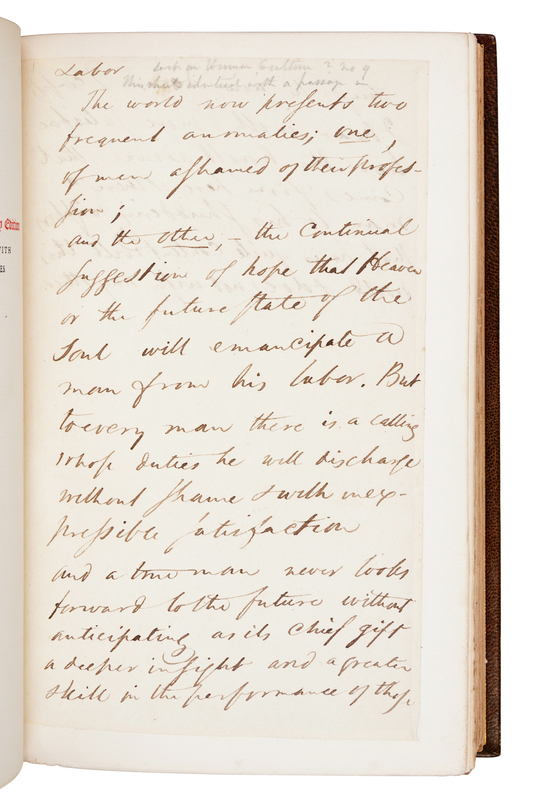 Labor
on Human Culture
This sheet identical with a passage in
The world now presents two
frequent anomalies; one,
of men ashamed of their profes-
sion;
and the other, – the continual
suggestion of hope that Heaven
or the future state of the
Soul will emancipate a
man from his labor. But
to every man there is a calling
whose duties he will discharge
without shame & with inex-
pressible satisfaction
and a true man never looks
forward to the future without
anticipating as its chief gift
a deeper insight and a greater
skill in the performance of those
y Edition
WITH
ES